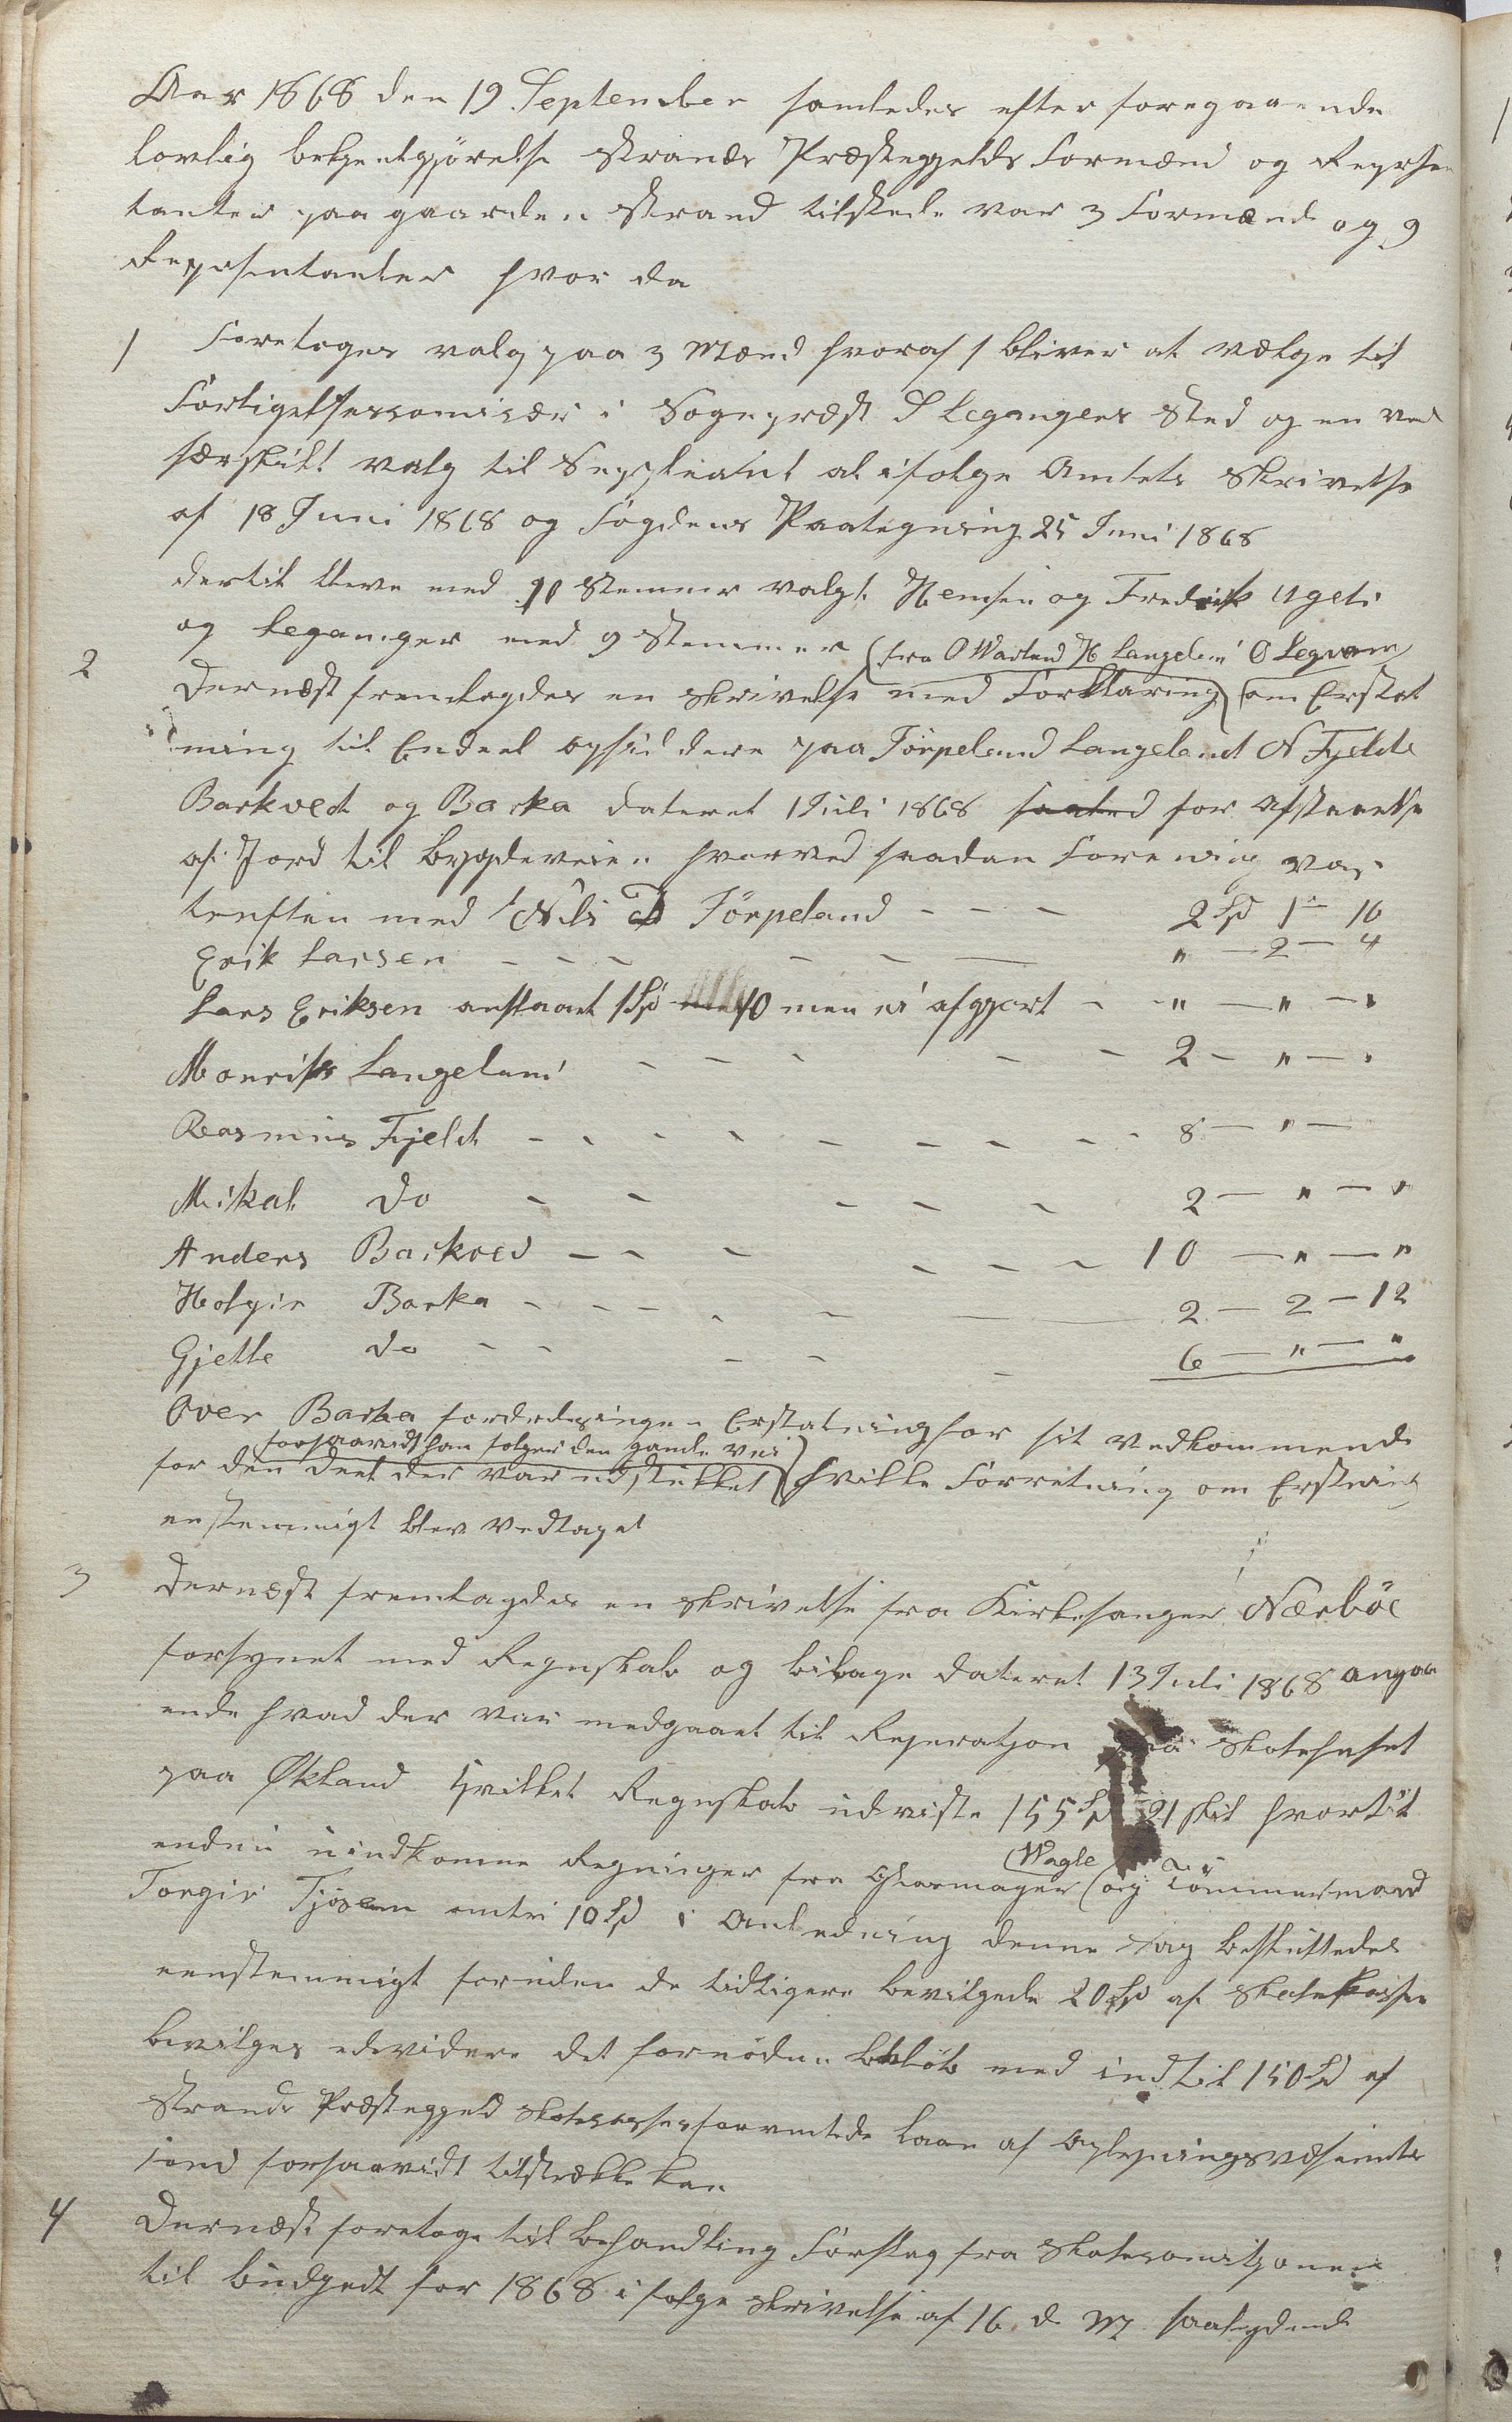 Aar 1868 den 19 September samledes efter foregaaende
lovlig bekjentgjørelse Strands Præstegjelds Formænd og Repræsen
tanter paa gaarden Strand tilstede var 3 Formænd og 9
Repræsentanter hvor da
1 Foretoges valg paa 3 Mænd hvoraf 1 bliver at vælge til
Forligelsescomisær i Sognepræst S Leganger Sted og en ved
særskilt valg til Suppleant alt ifølge Amtets Skrivelse
af 18 Juni 1868 og Fogdens Paategning 25 Juni 1868
dertil bleve med 10 Stemmer valgt Hemsen og Fredrik
og Leganger med 9 Stemmer
(fra O Warland H Langeland O Legvam
2 Dernæst fremlagdes en skrivelse med Forklaring) om Erstat
ning til Endeel opsiddere paa Törpeland Langeland N Fjelde
Barkved og Barka dateret 1 Juli 1868 for Afstaaelse
af Jord til bygdeveien hvorved saadan Forening var
truffen med Nils Törpeland - - - 2 Spd 1 - 16
Erik Larsen - - - - - - " - 2 - 4
Lars Eriksen 1 Spd men ei afgjort - " - " - "
Mourits Langeland - - - - - 2 - " - "
Rasmus Fjeld - - - - - - - - - 8 - " -
Mikal do - - - - - 2 - " - "
Anders Barkved - - - - - - 10 - " - "
Holgir Barka - - - - - - 2 - 2 - 12
Gjelle do - - - - - 6 - " - "
Over Barka Erstatning for sit vedkommende
forsaavidt han følger den gamle vei
for den deel der var udstukket) hvilke Forretning om Erstatning
enstemmigt blev vedtaget
3 Dernæst fremlagdes en skrivelse fra Kirkesanger Nærböe
forsynet med Regnskab og bilage dateret 13 Juli 1868 angaa
ende hvad der var medgaaet til Reperatjon paa Skolehuset
paa Økland hvilket Regnskab udviste 155 Spd 21 skil hvortil
endnu uindkomne Regninger fra Glarmager (Wagle) og Tömmermand
Torgir Tjösem omtr 10 Spd i Anledning denne sag besluttedes
eenstemmigt foruden de tidligere bevilgede 20 Spd af Skolekassen
bevilges udvidere det fornødne beløb med indtil 150 Spd af
Strands Præstegjeld laan af Oplysningsvæsenets
fond forsaavidt tilstrække kan
4 Dernæst foretoges til behandling Forslag fra Skolecomitjonen
til budgedt for 1868 i følge skrivelse af 16 d M saalydende